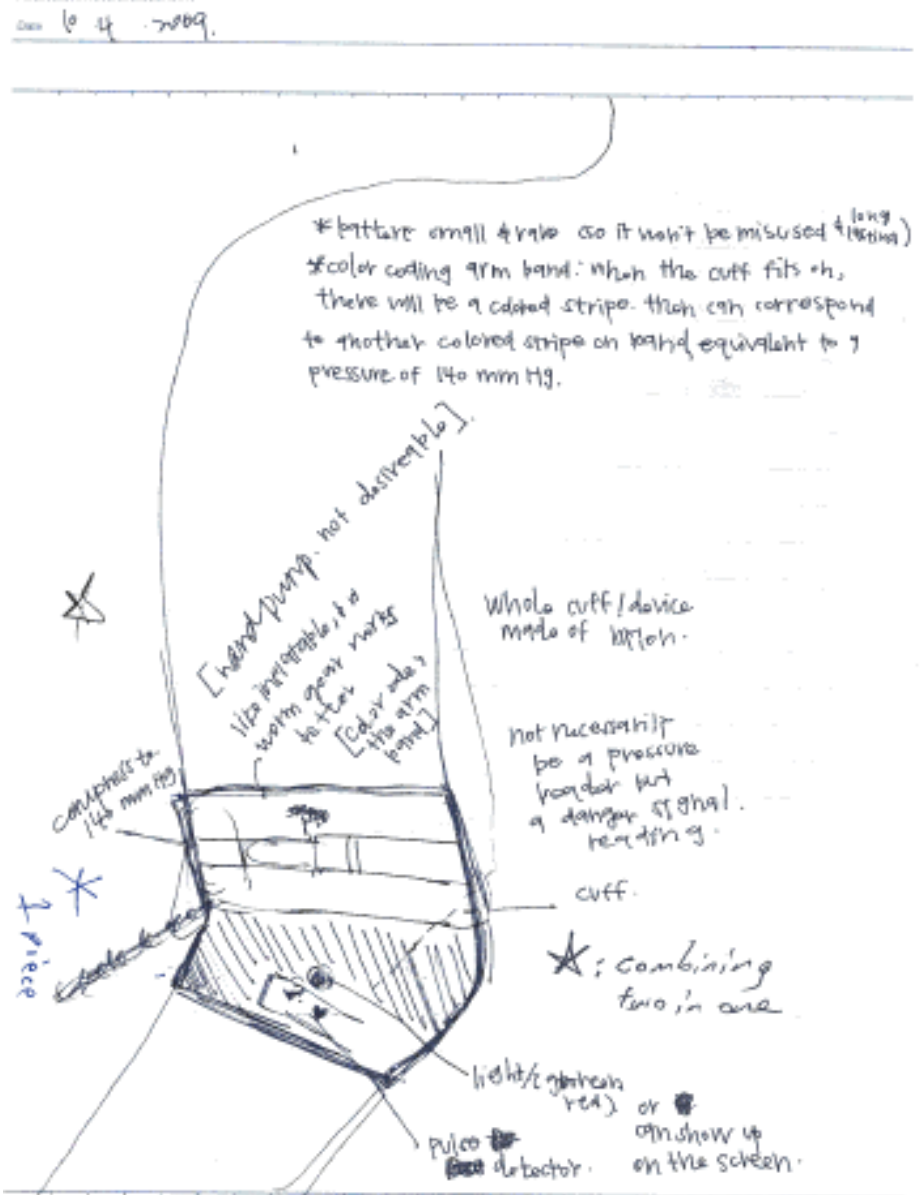 Date 10 4 2009.
*battere small & rare so it won't be misused (& long lasting)
*color coding arm band: when the cuff fits on,
there will be a colored stripe. then can correspond
to another colored stripe on band equivalent to a
pressure of 140 mm Hg.
[hand pump. not desireable].
like inflatable,
worm gear works
better
[color codes
the arm
band]
Whole cuff/device
made of
not necessarily
be a pressure
reader but
a danger signal.
reading.
compress to
140 mm Hg
cuff.
*
1 piece
: combining
two in one
light/(green
red)
or
can show up
on the screen.
pulse
detector.